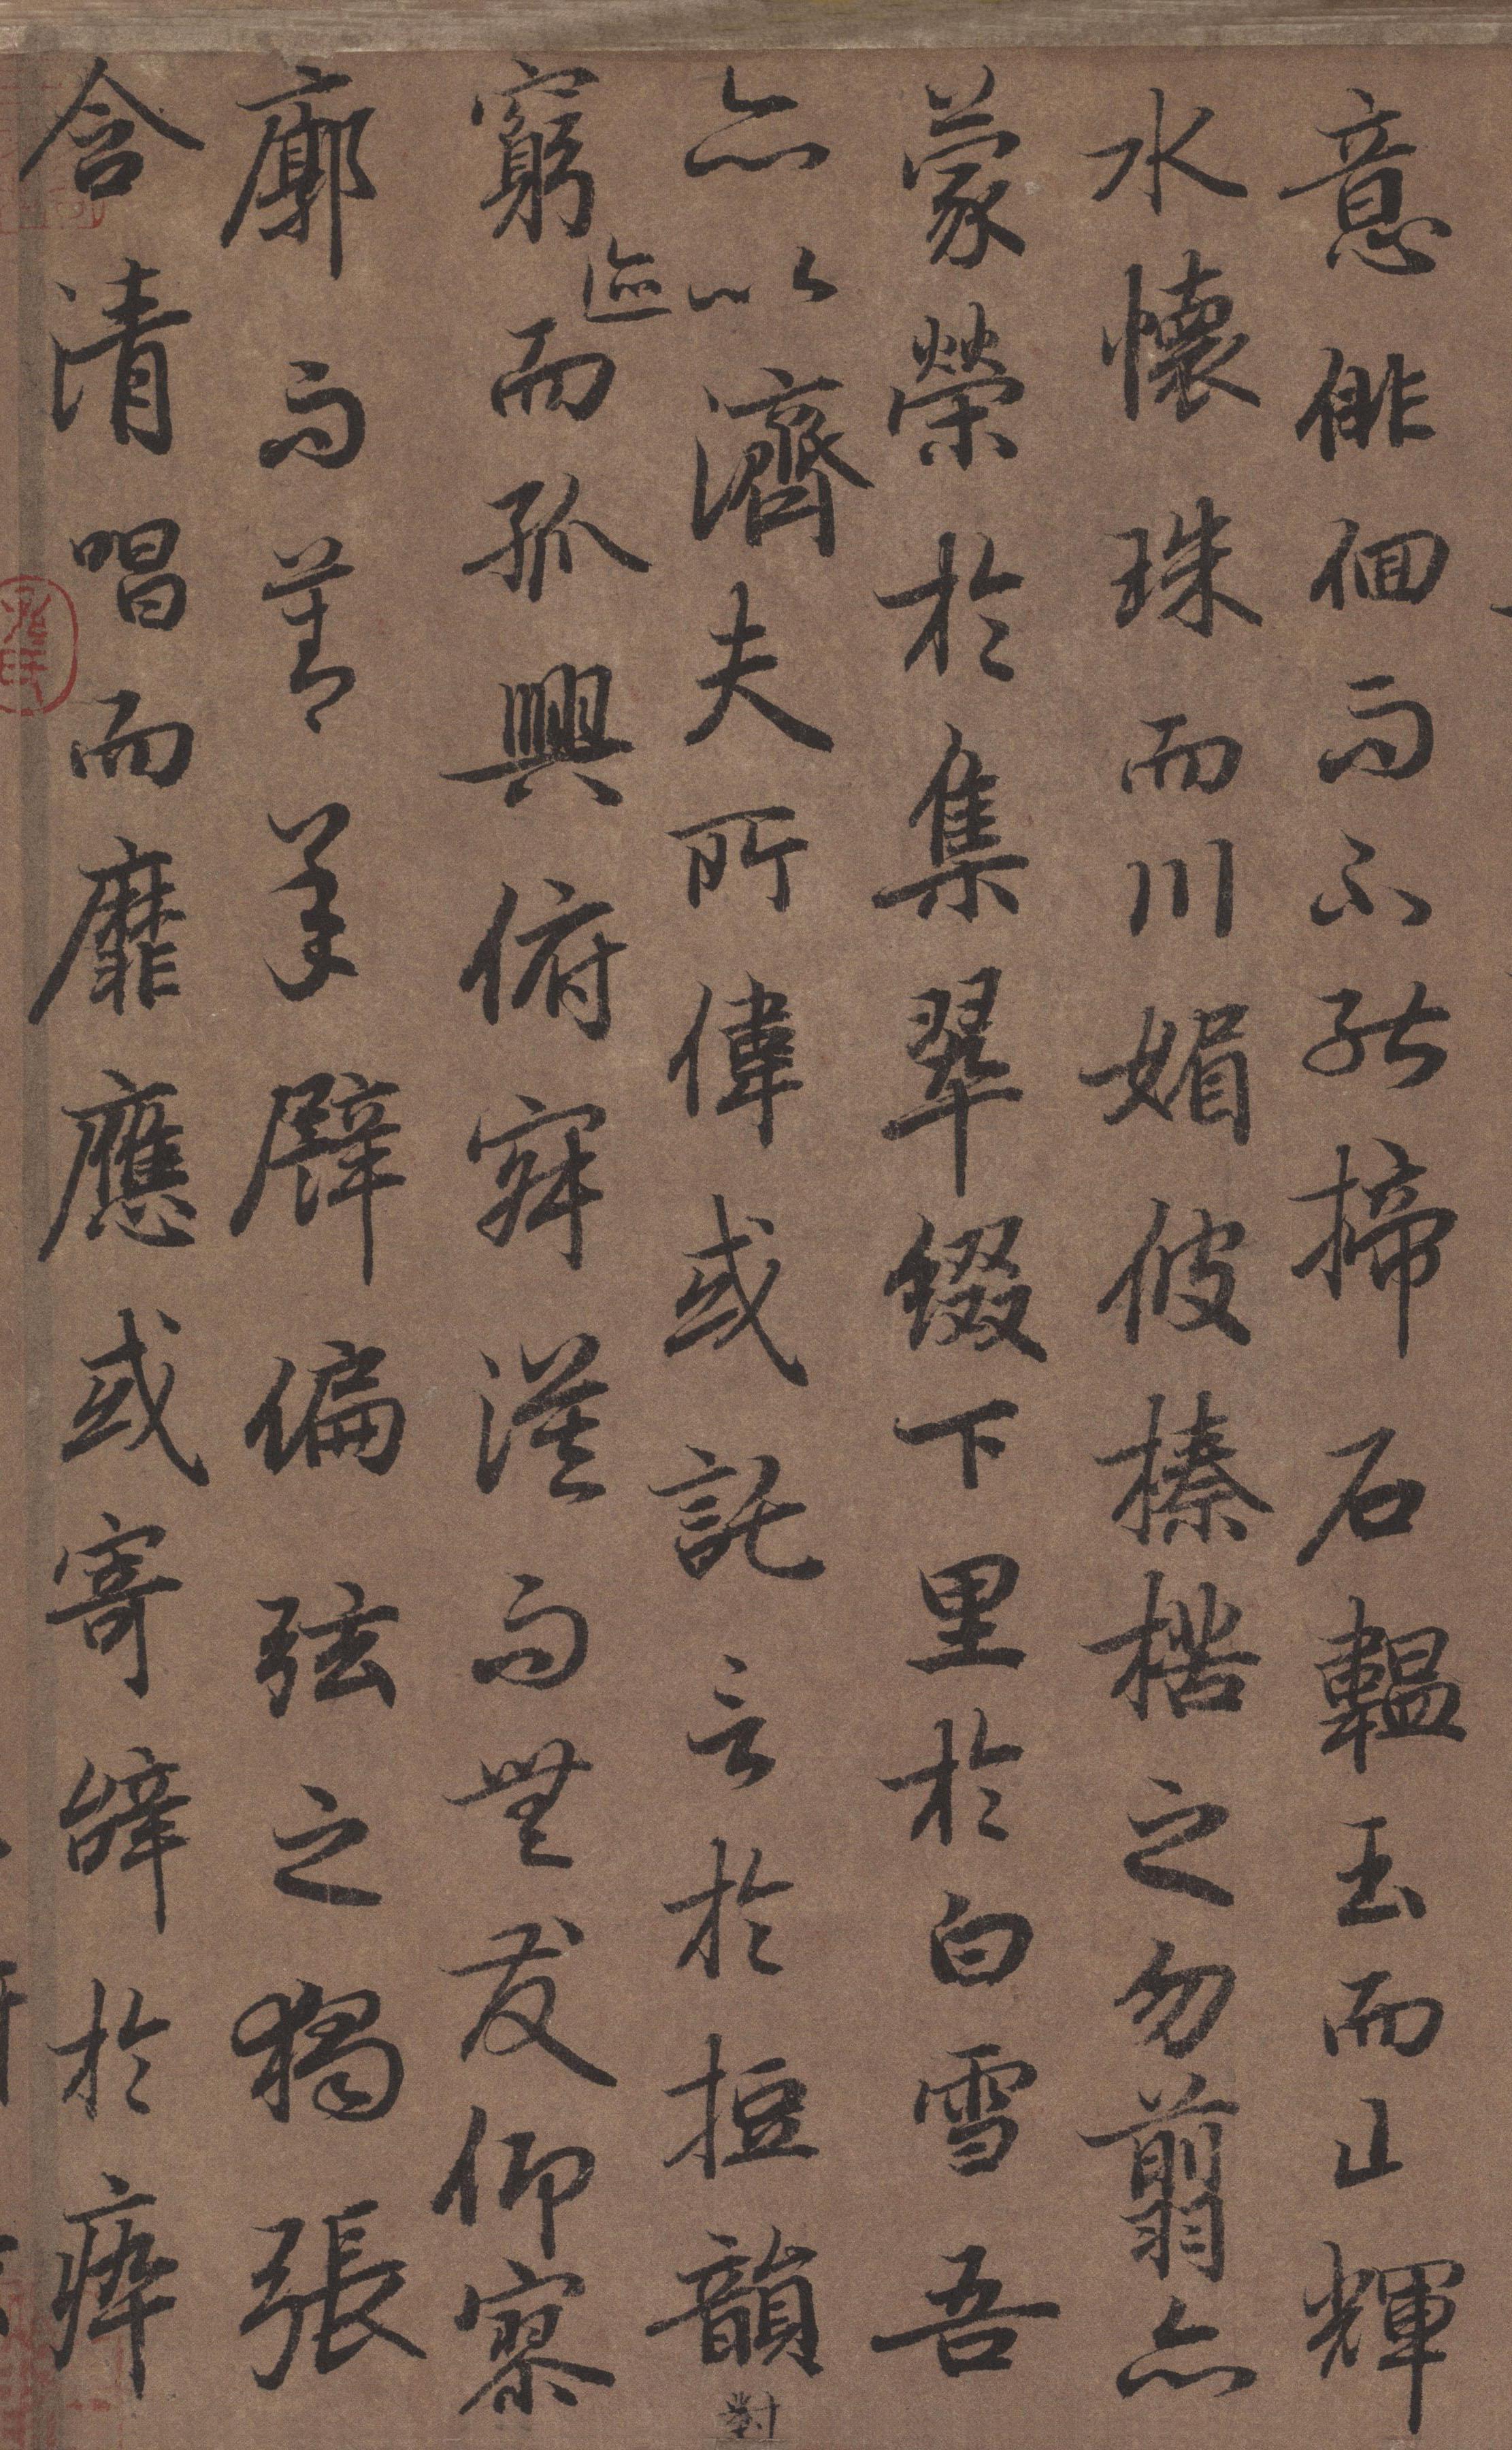 意徘徊而不能揥石韞玉而山輝
水懷珠而川媚彼榛楛之勿翦亦
蒙榮於集翠綴下里於白雪吾
亦以濟夫所偉或託言於短韻
對
窮迹而孤興俯寂漠而無友仰寥
廓而莫承譬偏弦之獨張
含清唱而靡應或寄辭於瘁